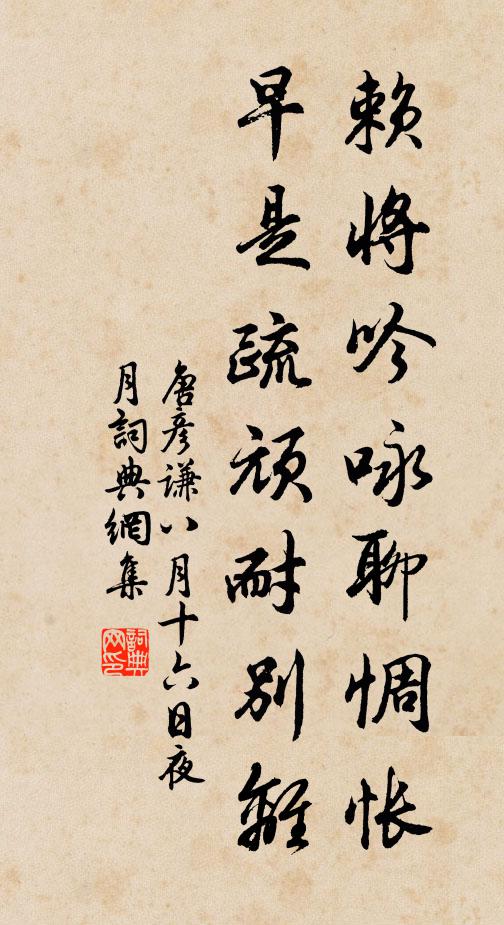 赖將吟咏聊惆怅
早是疏頑耐别離
唐彦谦八月十六日夜
月詞典網集
詞典网印